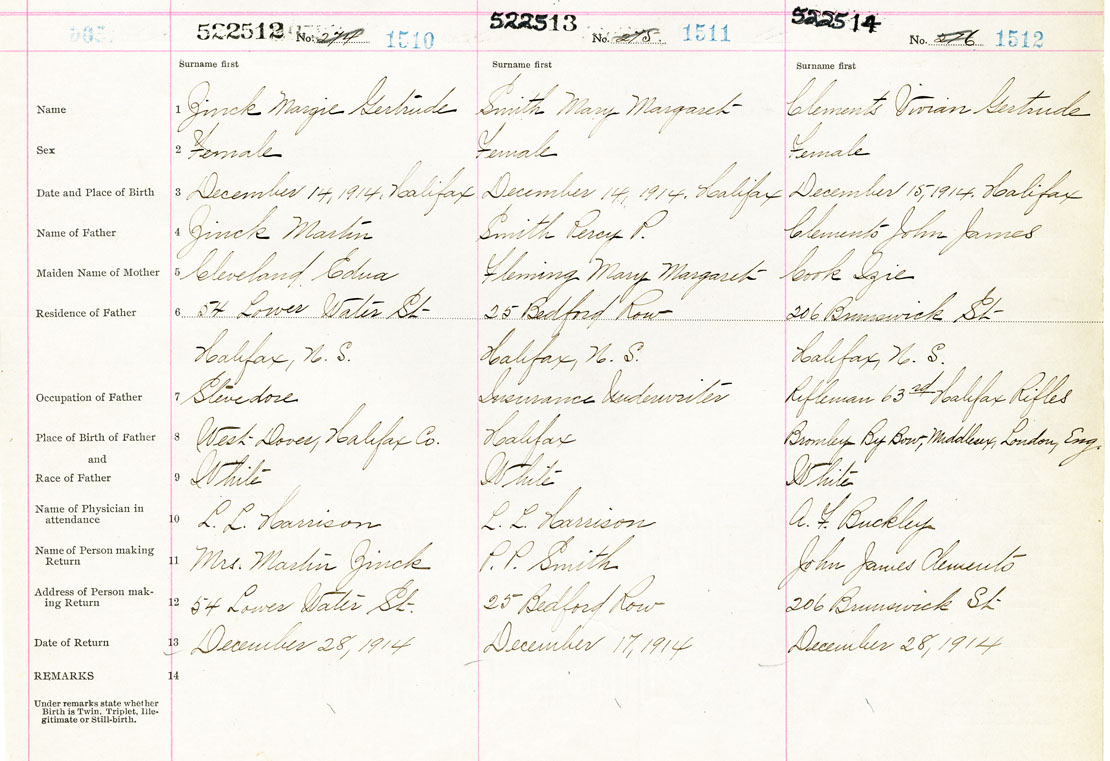 522512 No. 274 1510 522513 No. 275 1511 522514 No. 276 1512
Surname first Surname first Surname first
Name 1 Zinck Margie Gertrude Smith Mary Margaret Clements Vivian Gertrude
Sex 2 Female Female Female
Date and Place of Birth 3 December 14, 1914. Halifax December 14, 1914. Halifax December 15, 1914. Halifax
Name of Father 4 Zinck Martin Smith Percy P. Clements John James
Maiden Name of Mother 5 Cleveland Edna Fleming Mary Margaret Cook Izie
Residence of Father 6 54 Lower Water St 25 Bedford Row 206 Brunswick St
Halifax, N. S. Halifax, N. S. Halifax, N. S.
Occupation of Father 7 Stevedore Insurance Underwriter Rifleman 63rd Halifax Rifles
Place of Birth of Father 8 West Dover, Halifax Co. Halifax Bromley By Bow, Middlesex, London, Eng.
and
Race of Father 9 White White White
Name of Physician in
attendance 10 L. L. Harrison L. L. Harrison A. F. Buckley
Name of Person making
Return 11 Mrs. Martin Zinck P. P. Smith John James Clements
Address of Person mak-
ing Return 12 54 Lower Water St. 25 Bedford Row 206 Brunswick St
Date of Return 13 December 28, 1914 December 17, 1914 December 28, 1914
REMARKS 14
Under remarks state whether
Birth is Twin, Triplet, Ille-
gitimate or Still-birth.